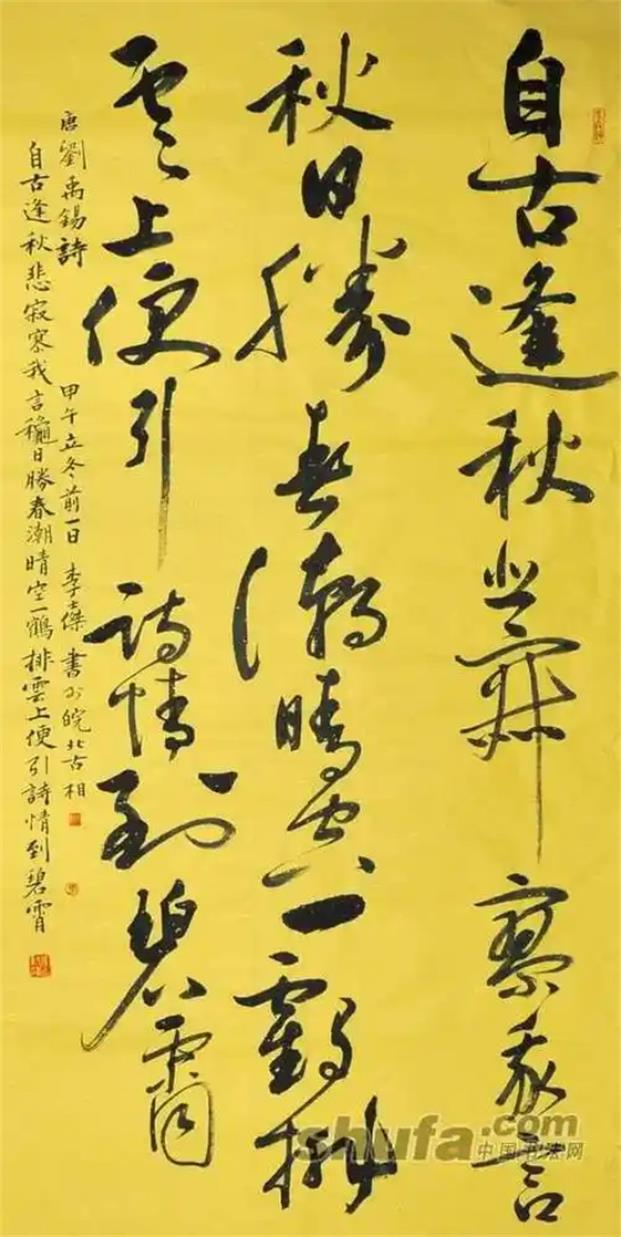 自古逢秋悲寂寥我言
秋日勝春潮晴空一鶴排
雲上便引詩情到碧霄
唐劉禹錫詩
甲午立冬前一日 李傑書於皖北古相
自古逢秋悲寂寥我言龝日勝春潮晴空一鶴排雲上便引詩情到碧霄
shufa.com
中国书法网